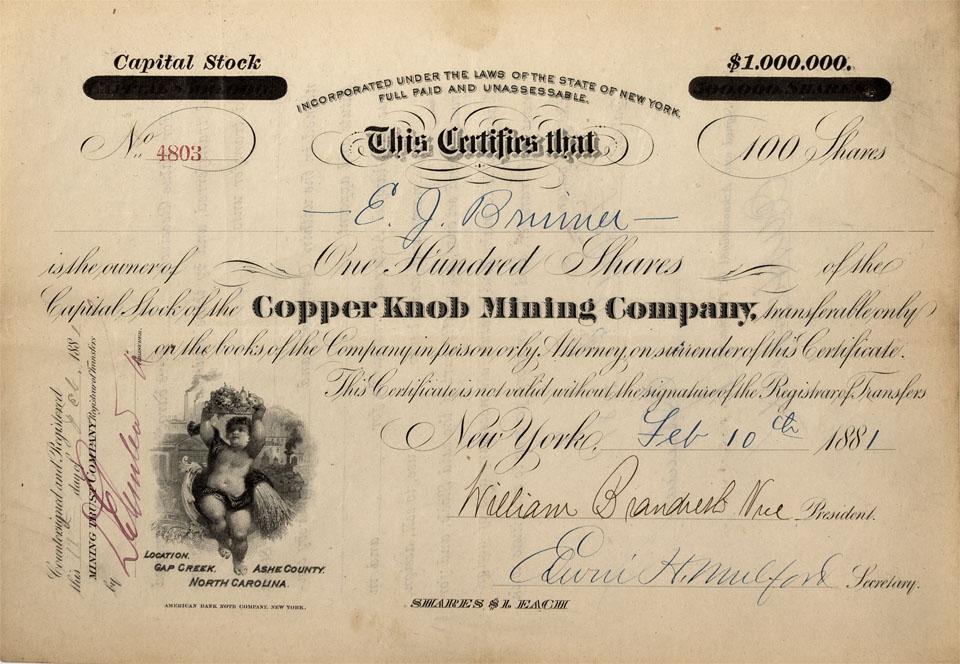 Capital Stock
$1.000.000.
INCORPORATED UNDER THE LAWS OF THE STATE OF NEW YORK.
FULL PAID AND UNASSESSABLE.
No. 4803
This Certifies that
100 Shares
E. J. Brimer
is the owner of One Hundred Shares of the
Capital Stock of the Copper Knob Mining Company, transferable only
on the books of the Company in person or by Attorney, on surrender of this Certificate.
This Certificate is not valid without the signature of the Registrar of Transfers
New York, Feb 10th 1881
William Brandreth Vice President.
Edwin H. Mulford Secretary.
Countersigned and Registered
this day of 188
MINING TRUST COMPANY Registrar of Transfers
by
LOCATION.
GAP CREEK. ASHE COUNTY.
NORTH CAROLINA.
AMERICAN BANK NOTE COMPANY, NEW YORK.
SHARES $1. EACH